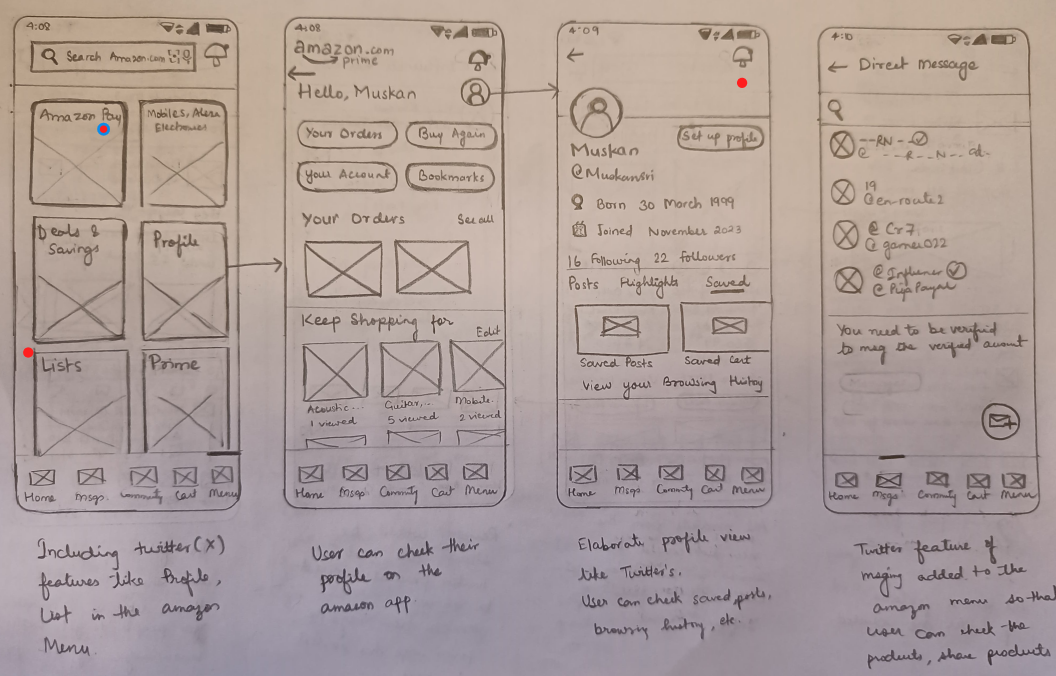 4:08
Search Amazon.com
Amazon Pay
Mobiles, Alexa
Electronics
Deals &
Savings
Profile
Lists
Prime
Home Msgs. Community Cart Menu
Including twitter(X)
features like Profile,
List in the amazon
Menu.
4:08
amazon.com
prime
Hello, Muskan
Your Orders
Buy Again
Your Account
Bookmarks
Your Orders
See all
Keep Shopping for
Edit
Acoustic...
1 viewed
Guitar,..
5 viewed
Mobile.
2 viewed
Home Msgs Community Cart Menu
User can check their
profile on the
amazon app.
4:09
Set up profile
Muskan
@Muskansri
Born 30 March 1999
Joined November 2023
16 Following 22 followers
Posts Highlights Saved
Saved Posts
Saved Cart
View your Browsing History
Home Msgs Community Cart Menu
Elaborate profile view
like Twitter's.
User can check saved posts,
browsing history, etc.
4:10
Direct message
--RN--
19
@en-route2
@ Cr7
@ gamer022
@
@ PiyaPayal
You need to be verified
to msg the verified account
Home Msgs Community Cart Menu
Twitter feature of
msging added to the
amazon menu so that
user can check the
products, share products